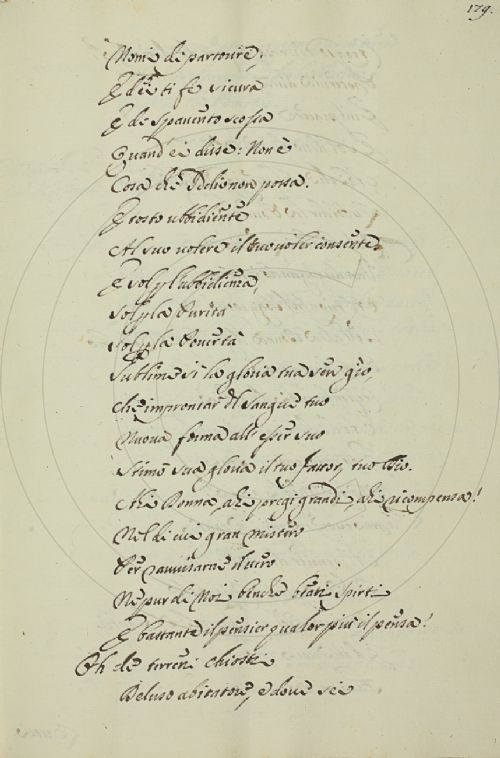 179.
Nome de partorire;
E die ti fe sicura
E de spauento scossa
Quand' ei disse: Non è
Cosa che Iddio non possa.
E tosto ubbidiente
Al suo uolere il tuo uoler consente,
E sol p l'ubbidienza,
Sol p la Purità
Sol p la Pouertà
Sublime sì la gloria tua
che improntar del sangue tuo
Nuoua forma all' esser suo
Stimò sua gloria il tuo fattor, tuo Dio.
Ahi Donna, ahi pregi grandi, ahi ricompensa!
Nel di cui gran mistero
Per rauuisarne il uero
Ne pur di Noi benche beati spirti
E bastante il pensier qualor più il pensa!
Oh de terreni chiostri
Deluso abitatore, e doue sei